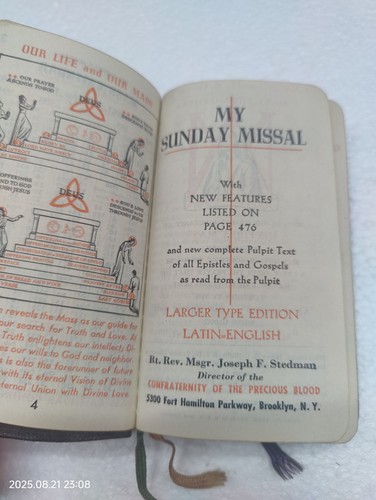 OUR LIFE and OUR MASS
OUR PRAYER
ASCENDS TO GOD
DEUS
OFFERINGS
TO GOD
THROUGH JESUS
DEUS
GOD'S LOVE
THROUGH JESUS
reveals the Mass as our guide
our search for Truth and Love. At
Truth enlightens our intellect;
our wills to God and neighbor
is also the forerunner of future
with its eternal Vision of Divine
eternal Union with Divine Love
4
MY
SUNDAY MISSAL
With
NEW FEATURES
LISTED ON
PAGE 476
and new complete Pulpit Text
of all Epistles and Gospels
as read from the Pulpit
LARGER TYPE EDITION
LATIN-ENGLISH
Rt. Rev. Msgr. Joseph F. Stedman
Director of the
CONFRATERNITY OF THE PRECIOUS BLOOD
5300 Fort Hamilton Parkway, Brooklyn, N. Y.
2025.08.21 23:08